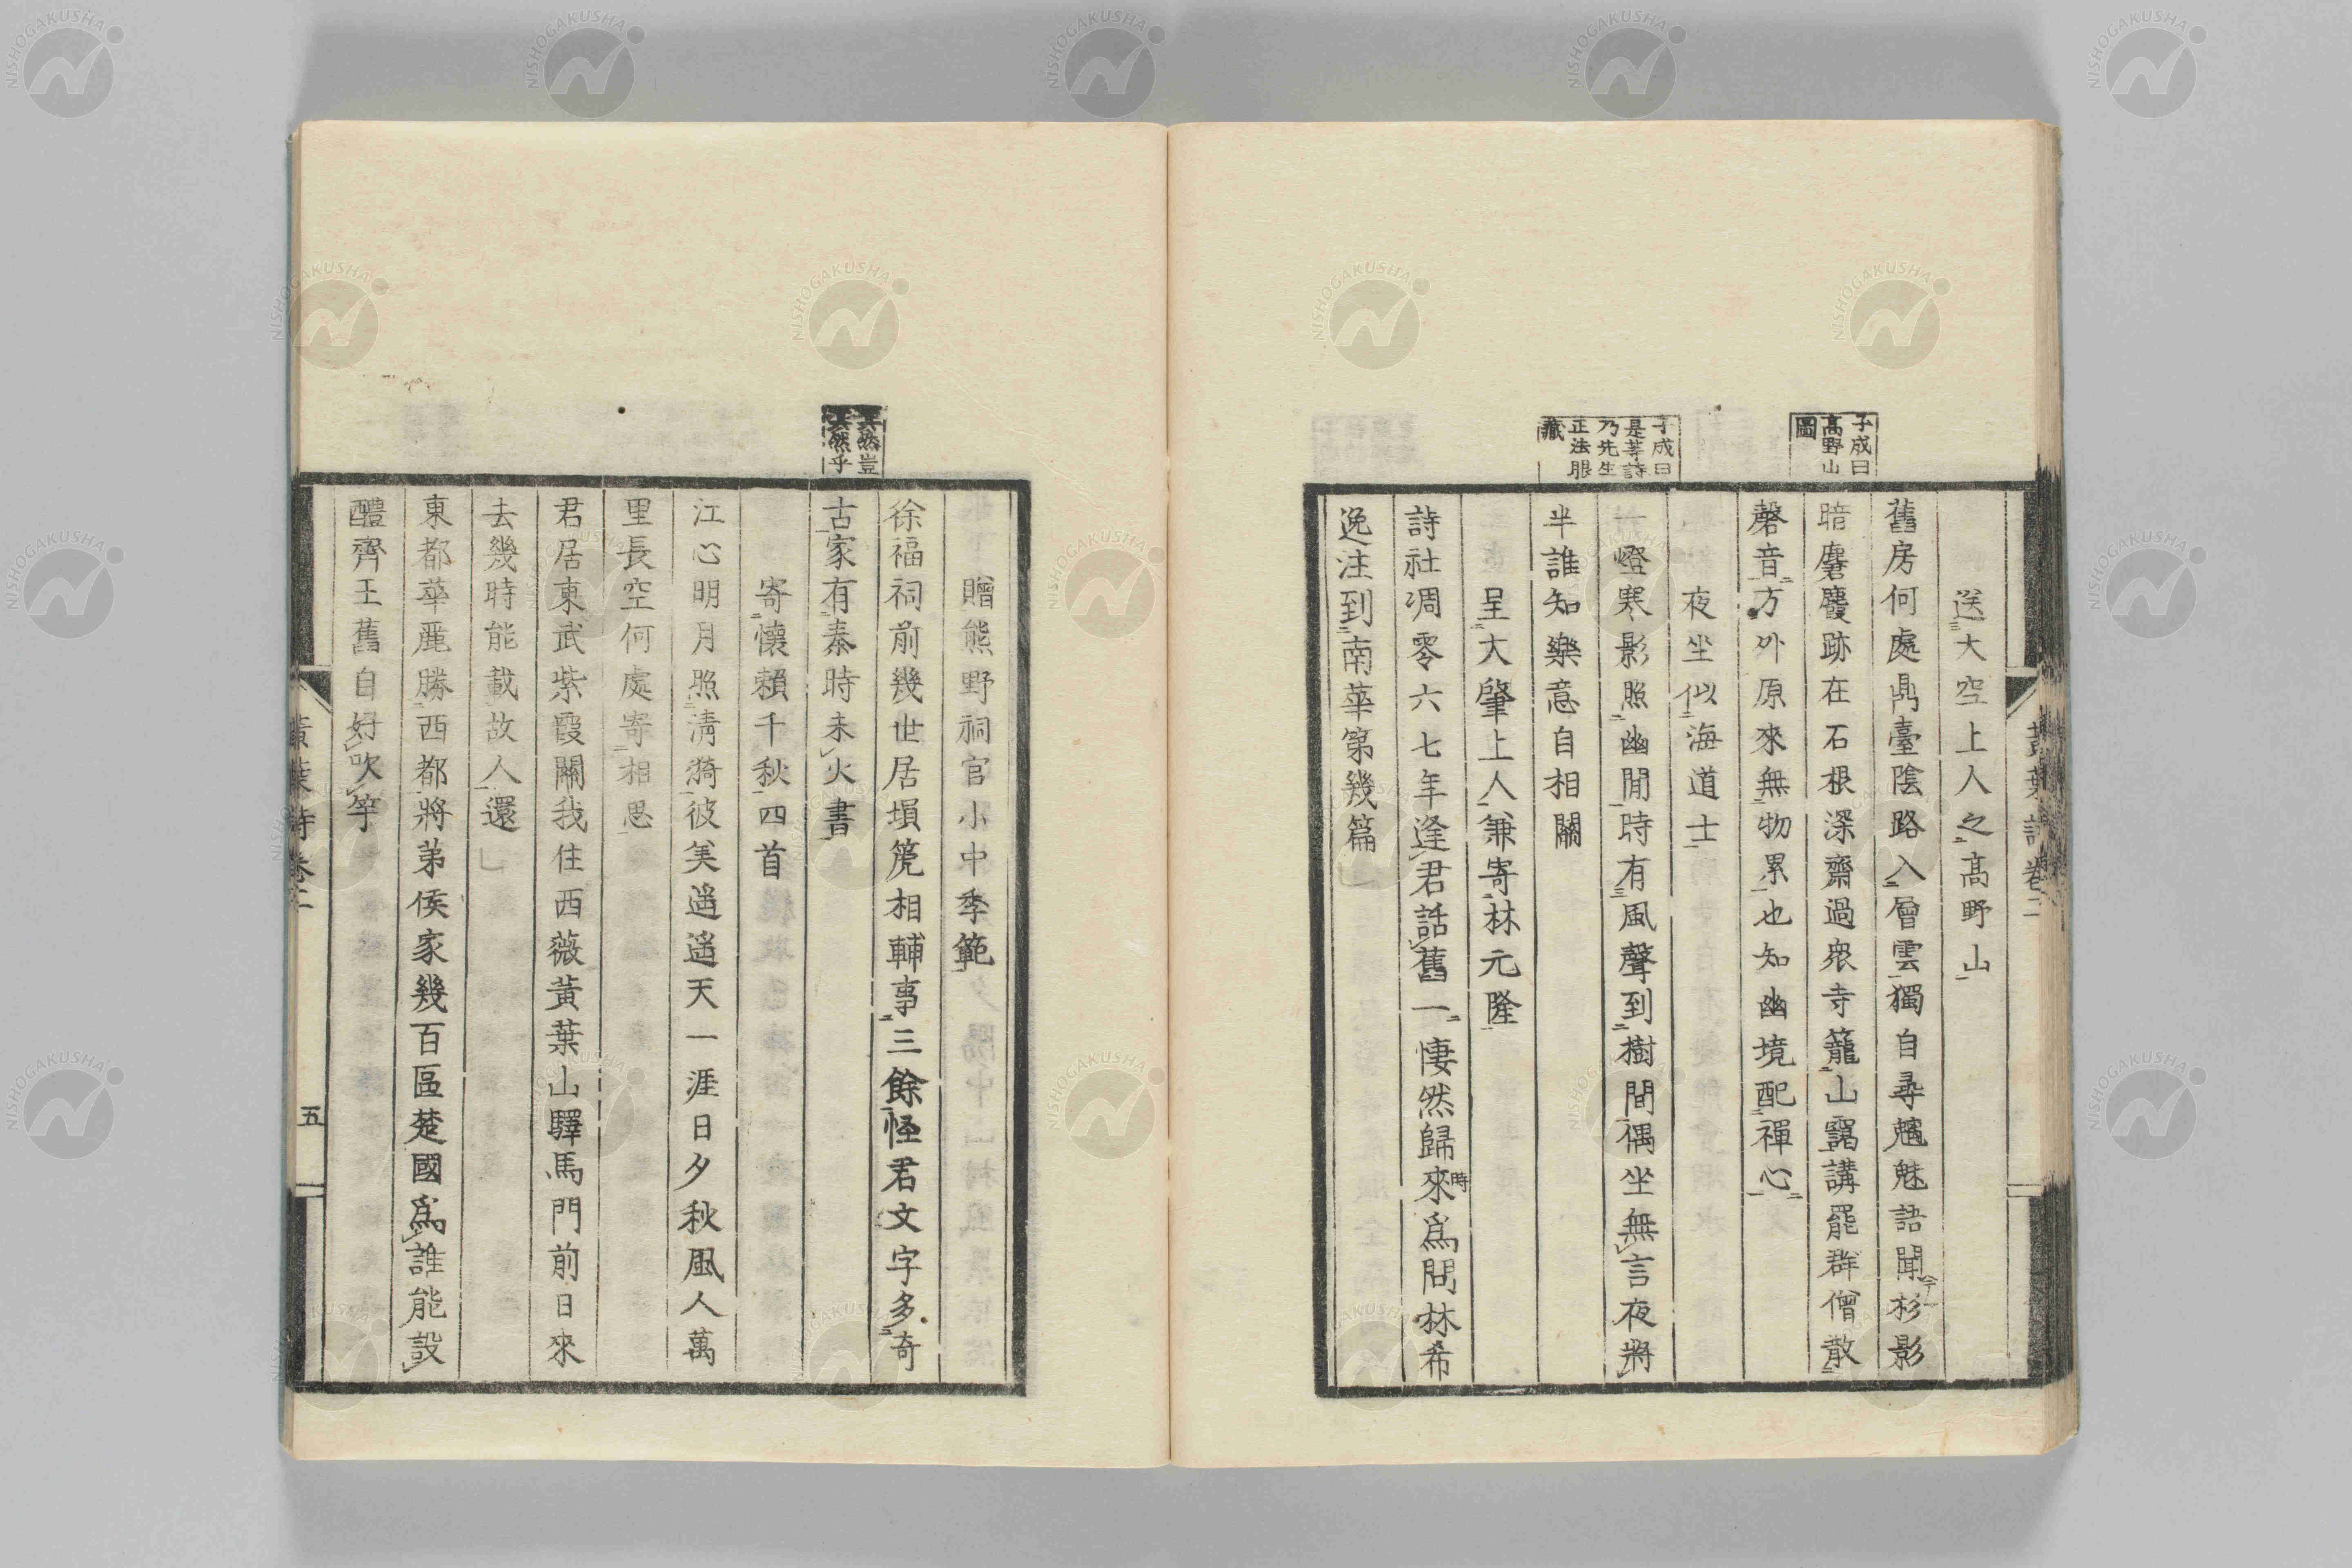 子成曰
高野山
圖
子成曰
是等詩
乃先生
正法眼
藏
送大空上人之高野山
舊房何處鬲臺陰路入層雲獨自尋魑魅語聞杉影
暗麏麚跡在石根深齋過衆寺籠山靄講罷群僧散
磬音方外原來無物累也知幽境配禪心
夜坐似海道士
一燈寒影照幽閒時有風聲到樹間偶坐無言夜將
半誰知樂意自相關
呈大肇上人兼寄林元隆
詩社凋零六七年逢君話舊一悽然歸來時爲問林希
逸注到南華第幾篇
黃葉詩卷二
其然豈
其然乎
贈熊野祠官小中季範
徐福祠前幾世居塤篪相輔事三餘怪君文字多奇
古家有秦時未火書
寄懷賴千秋四首
江心明月照淸漪彼美遙遙天一涯日夕秋風人萬
里長空何處寄相思
君居東武紫霞關我住西薇黃葉山驛馬門前日來
去幾時能載故人還
東都華麗勝西都將弟侯家幾百區楚國爲誰能設
醴齊王舊自好吹竽
黃葉詩卷二
五
NISHOGAKUSHA